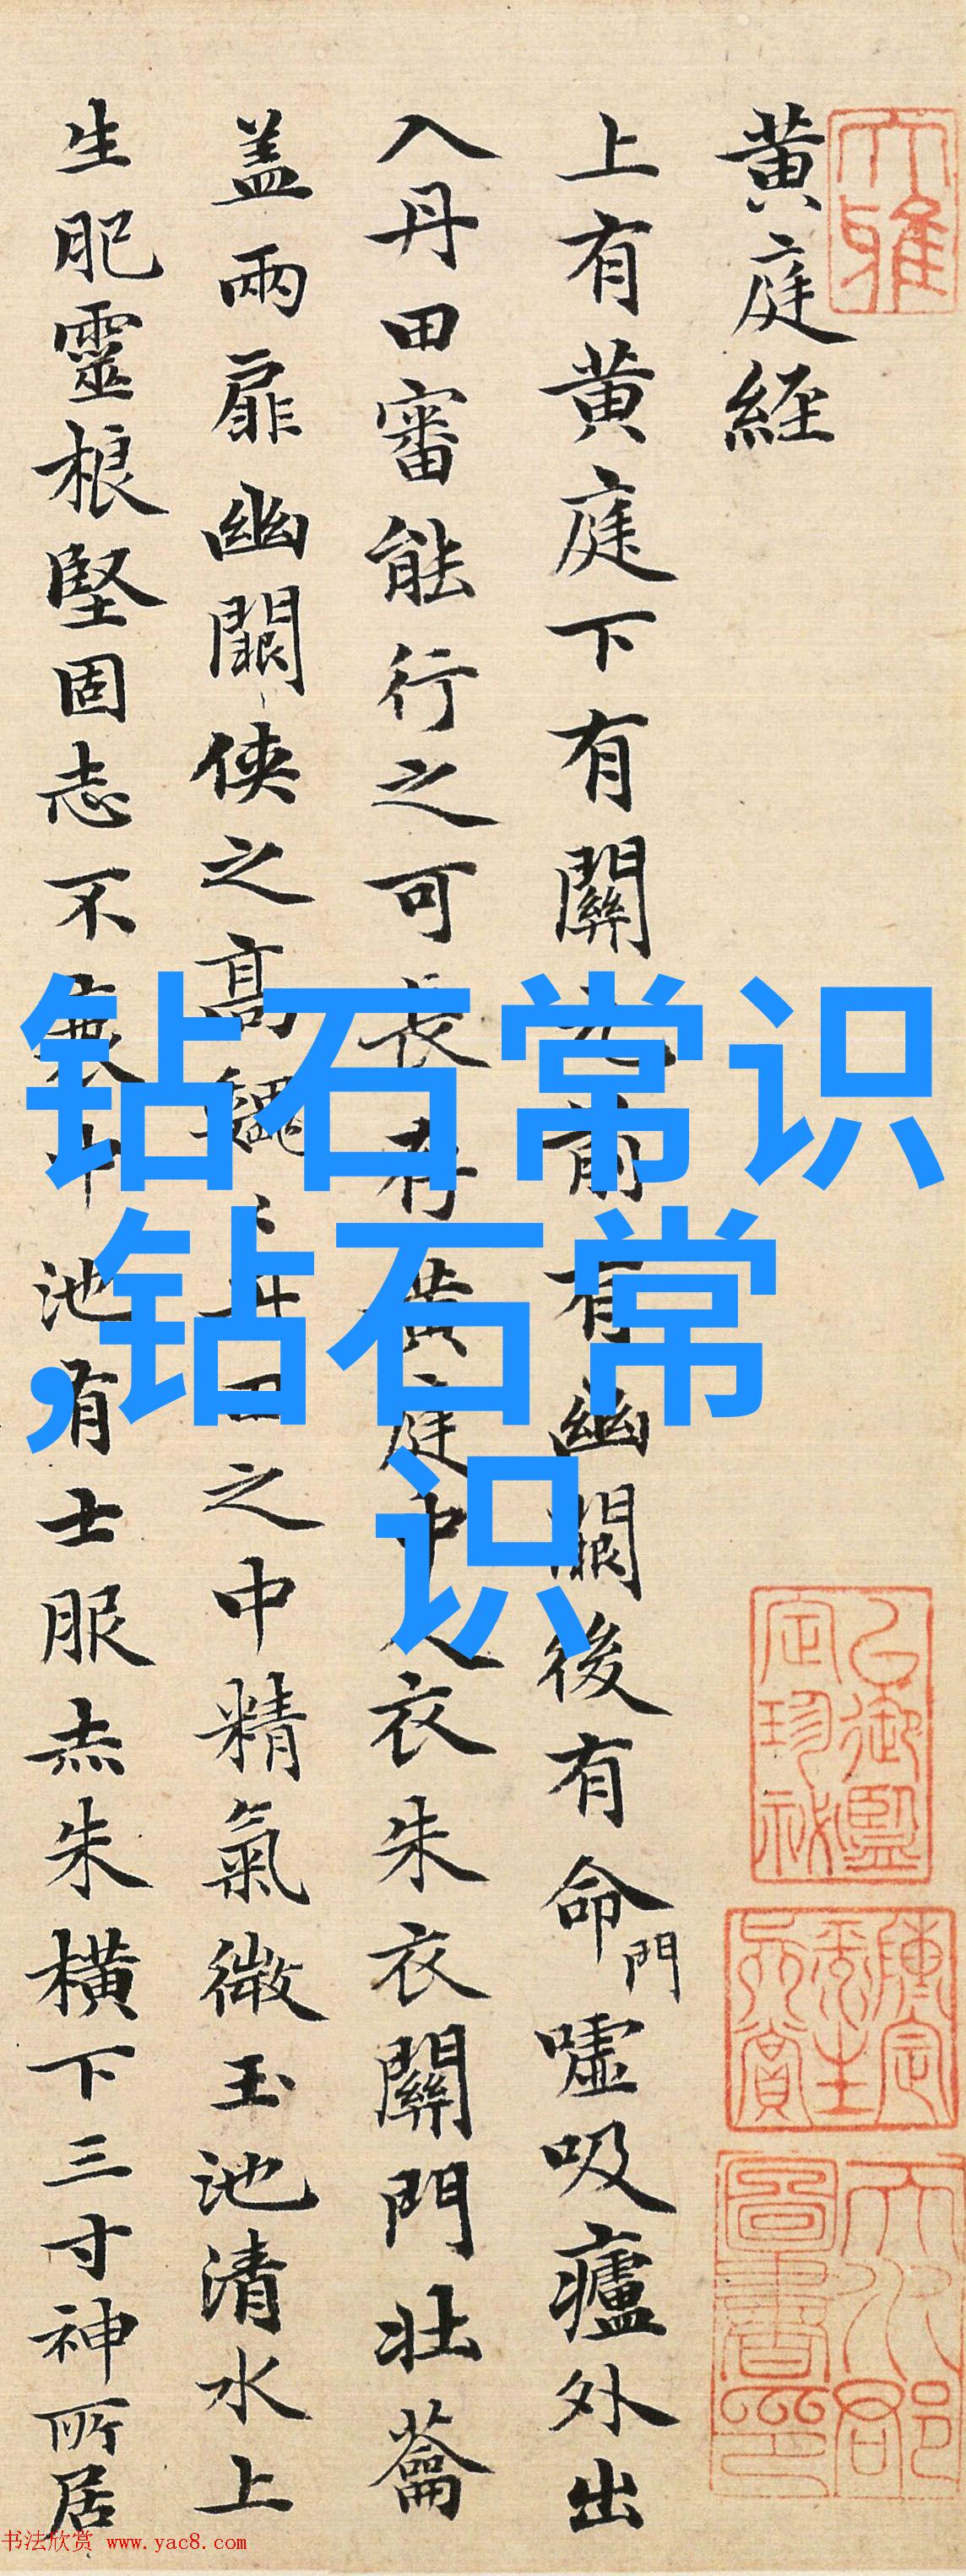 黄庭經
上有黄庭下有關元前有幽闕後有命門嘘吸廬外出
入丹田審能行之可長存黄庭中人衣朱衣關門壮蘥
蓋兩扉幽闕俠之高巍〻丹田之中精氣微玉池清水上
生肥靈根堅固志不衰中池有士服赤朱横下三寸神所居
钻石常识
,钻石常
识
大雅
书法欣赏 www.yac8.com